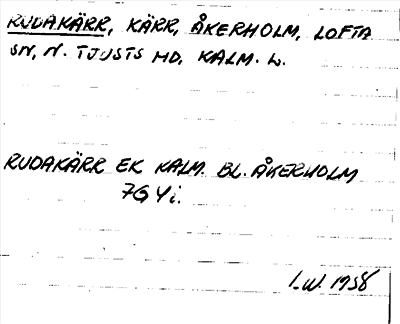 RUDAKÄRR, KÄRR, ÅKERHOLM, LOFTA
SN, N. TJUSTS HD, KALM. L.
RUDAKÄRR EK KALM. BL. ÅKERHOLM
7G 4i.
I.W. 1958